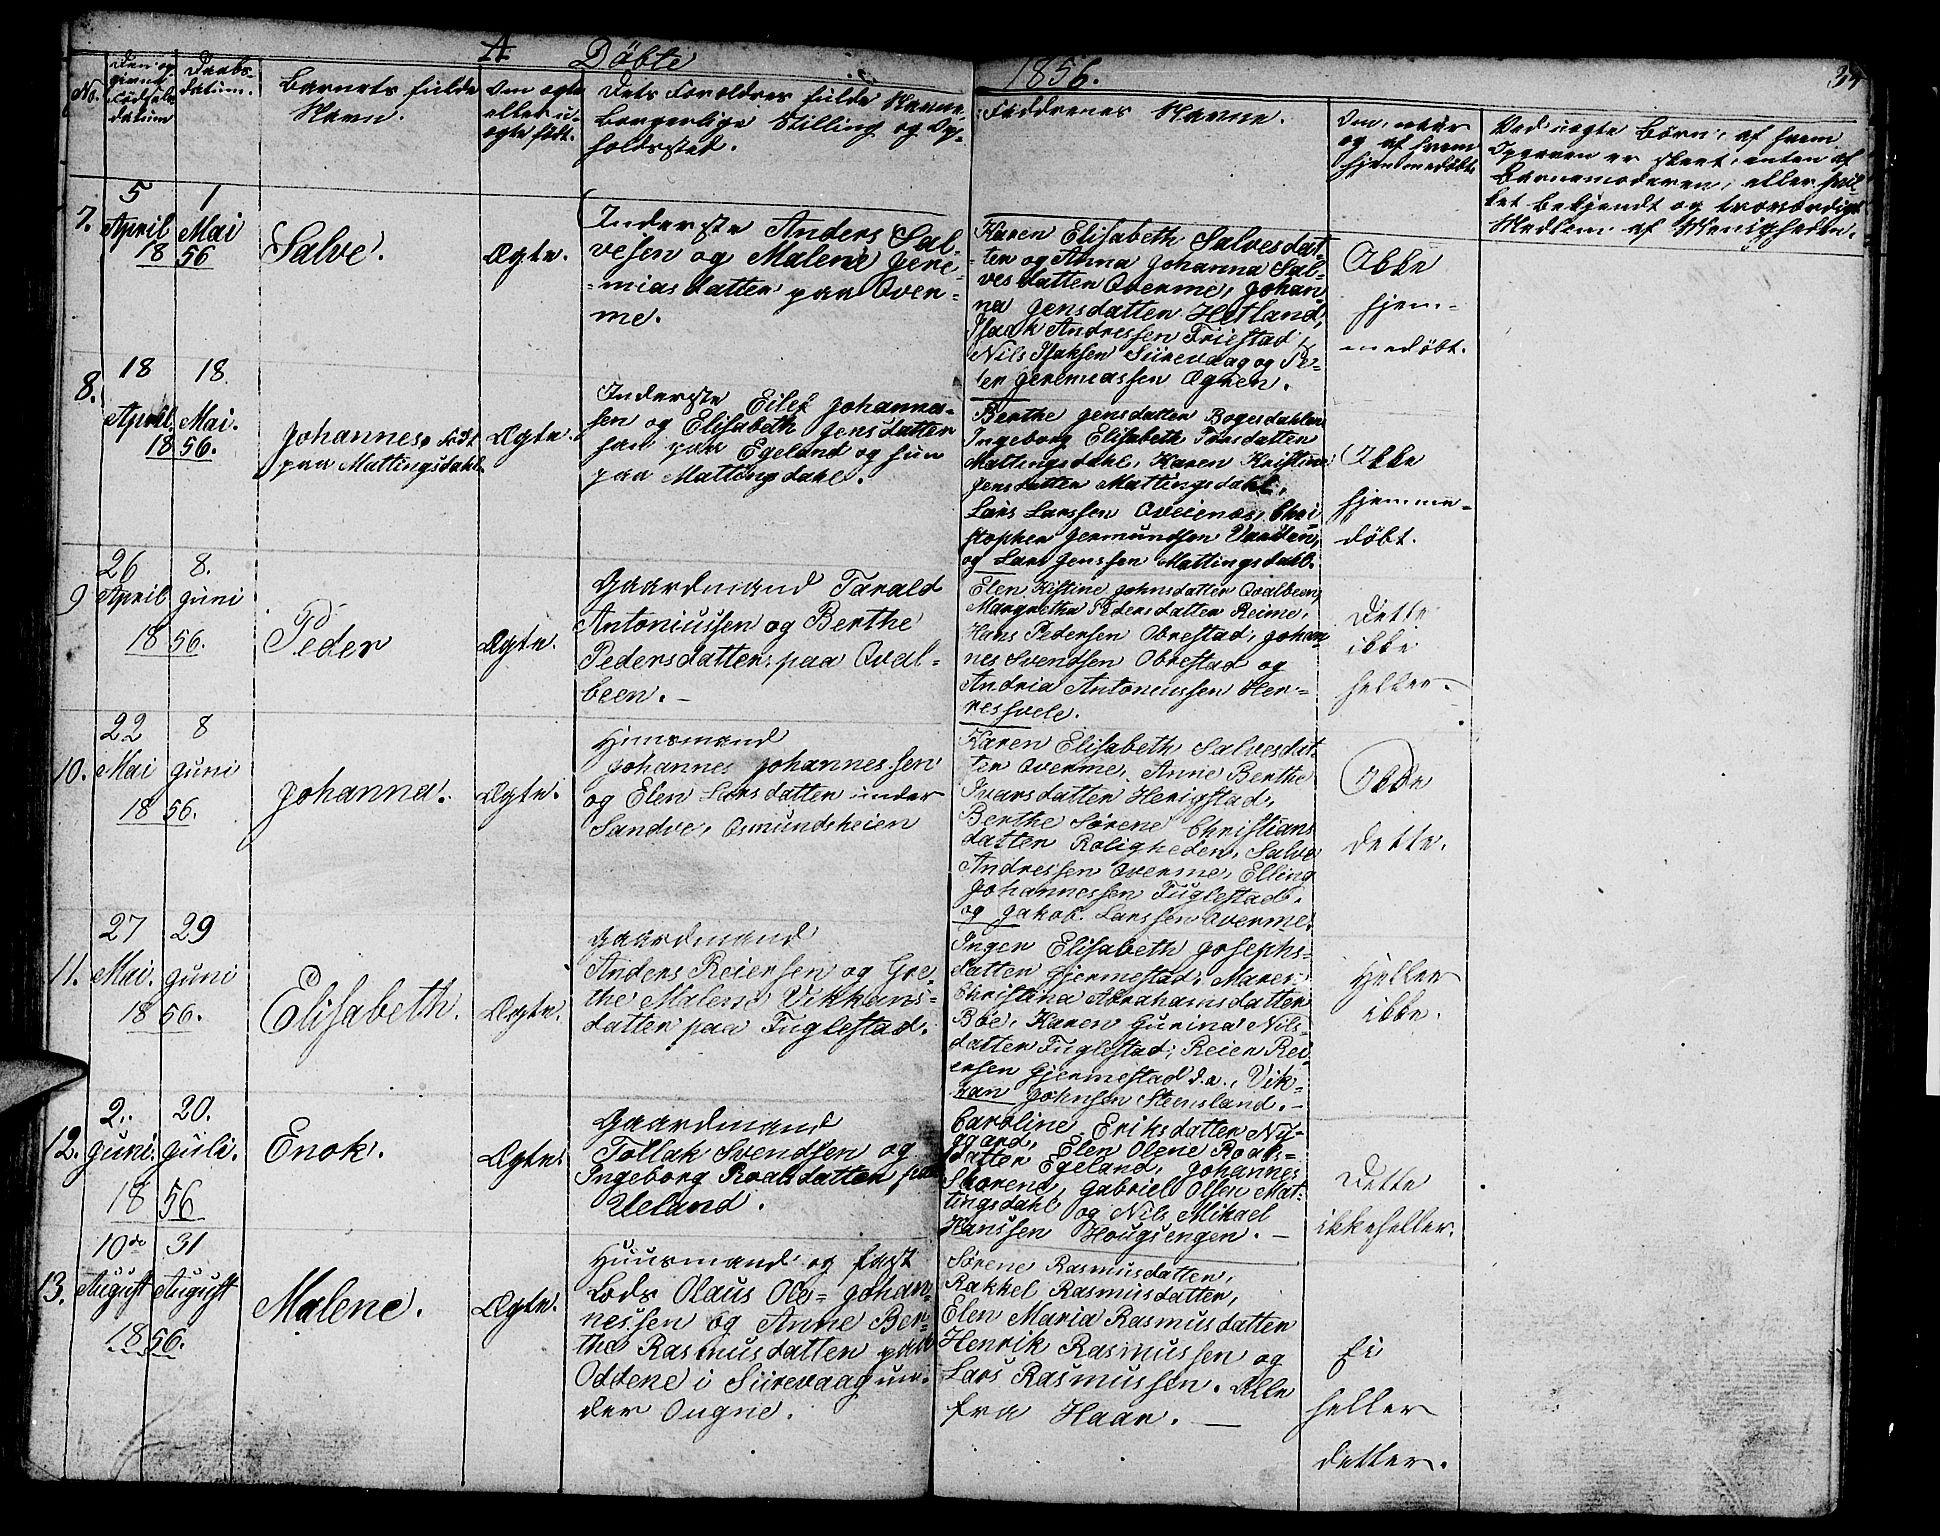 A Døbte 1856. 34
No.
Den op
givne
Fødsels
datum
Daabs-
datum.
Barnets fulde
Navn.
Om ægte
eller u-
ægte født.
Dets Foreldres fulde Navne,
borgerlige Stilling og Op-
holdssted.
Faddrenes Navne.
Om, naar
og af hvem
hjemmedøbt
Ved uægte Børn, af hvem
Opgaven er skeet, enten af
Barnemoderen, eller hvil-
ket bekjendt og troværdigt
Medlem af Menigheden.
7.
5 April 1 Mai
18 56
Salve.
Ægte.
Inderste Anders Sal-
vesen og Malene Jere-
-miasdatter paa Qver-
me.
Karen Elisabeth Salvesdat-
ter og Anna Johanna Sal-
vesdatter Qverme, Johan-
na Jensdatter Hetland,
Isaak Andressen Friestad,
Nils Isaksen Siirevaag og Pe-
ter Jeremiassen Ognen.
Ikke
hjem-
medøbt.
8.
18 April 18. Mai.
18 56.
Johannes. født
paa Mattingsdahl.
Ægte.
Inderste Eilef Johanne-
sen og Elisabeth Jensdatter
han paa Egeland og hun
paa Mattingsdahl.
Berthe Jensdatter Bogesdahlen
Ingeborg Elisabeth Tørsdatter
Mattingsdahl, Karen Kristine
Jensdatter Mattingsdahl,
Lars Larssen Qveienæs, Chri
stopher Jermundsen
og Lars Jenssen Mattingsdahl.
Ikke
hjemme-
døbt.
9
26 April 8. Juni
18 56.
Peder
Ægte.
Gaardmand Tarald
Antoniussen og Berthe
Pedersdatter, paa Qval-
been.-
Elen Kistine Johnsdatter Qvalbeen,
Margrethe Pedersdatter Reime,
Hans Pedersen Obrestad, Johan-
nes Svendsen Obrestad og
Andria Antoniussen Her-
resvele.
Dette
ikke
heller.
10.
22 Mai 8 Juni
18 56.
Johanna.
Ægte.
Huusmand
Johannes Johannessen
og Elen Larsdatter under
Sandve, Osmundsheien
Karen Elisabeth Salvesdat-
ter Qverme, Anne Berthe
Ivarsdatter Herigstad,
Berthe Sørene Christians
datter Roligheden, Salve
Andressen Qverme, Elling
Johannessen Fuglestad,
og Jakob. Larssen Qverme.
Ikke
dette.
11.
27 Mai. 29 Juni
18 56.
Elisabeth.
Ægte.
Gaardmand
Anders Reiersen og Gre-
the Malene Vikkans-
datter paa Fuglestad.
Inger Elisabeth Josephs-
datter Gjermestad, Maren
Christina Abrahamsdatter
Bøe, Karen Gurina Nils-
datter Fuglestad, Reier Rei-
ersen Gjermestad d.æ., Vik-
kan Johnsen Steensland.-
Heller
ikke.
12.
2. Juni. 20. Juli.
18 56
Enok.
Ægte.
Gaardmand
Tollak Svendsen og
Ingeborg Roalsdatter paa
Ueland.
Caroline Eriksdatter Ny-
gaard, Elen Olene Roals-
datter Egeland, Johannes
Skorend, Gabriel Olsen Mat-
tingsdahl og Nils Mikael
Hanssen Hougsengen.-
Dette
ikkeheller.
13.
10de August 31 August
18 56.
Malene.
Ægte.
Huusmand og fast
Lods Olaus Ole= Johan-
nessen og Anne Ber-
the Rasmusdatter paa
Oddene i Siirevaag un-
der Ougne.
Sørene Rasmusdatter,
Rakkel Rasmusdatter,
Elen Maria Rasmusdatter
Henrik Rasmussen og
Lars Rasmussen. Alle
fra Haar.
Ei
heller
dette.